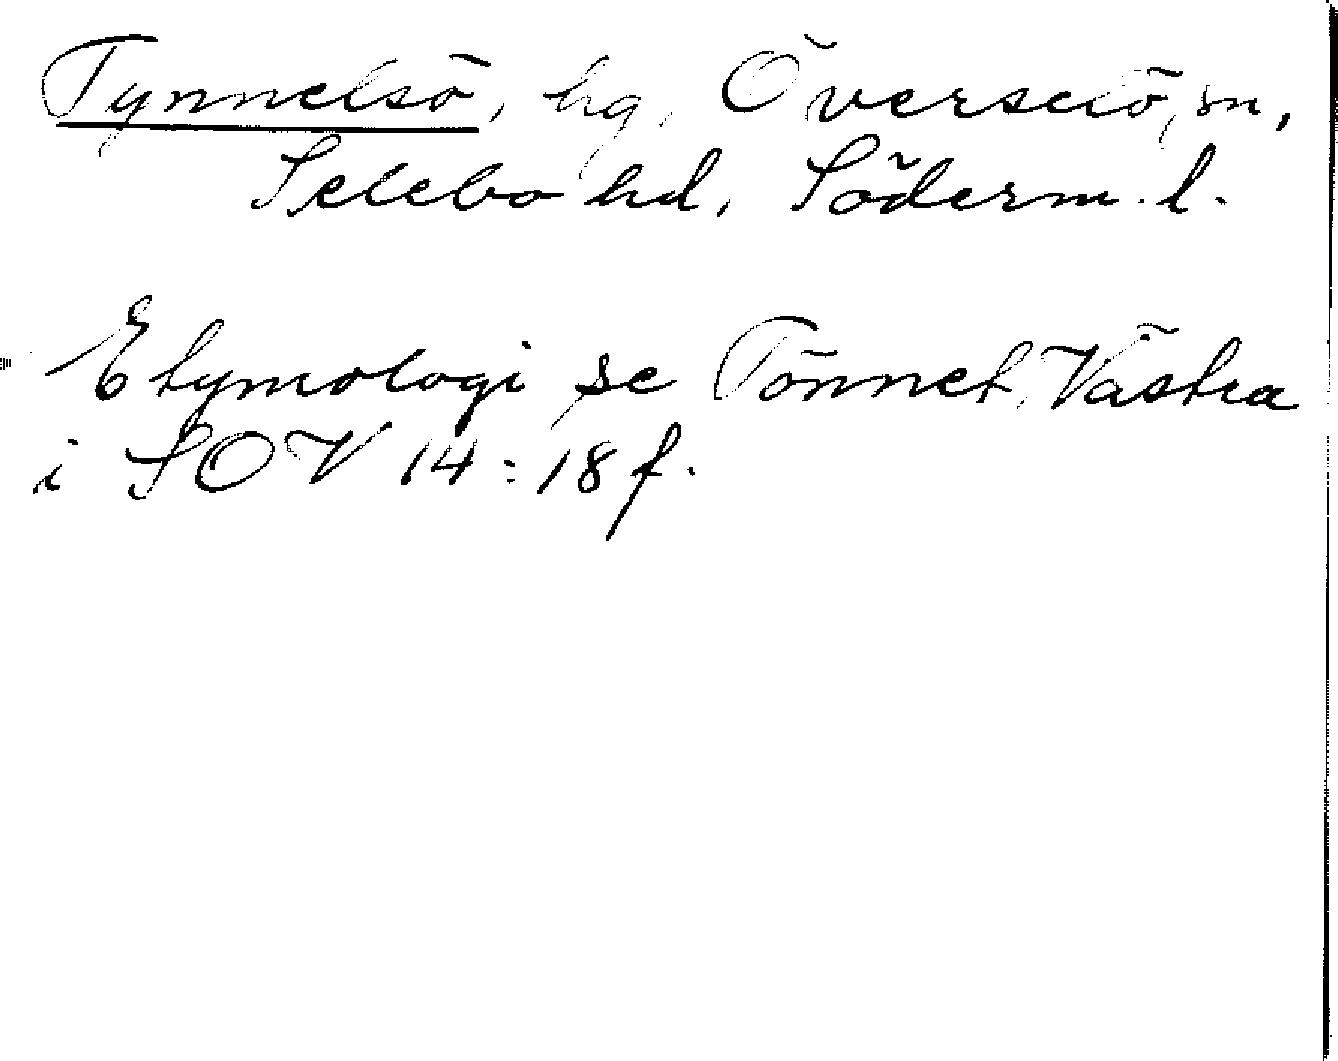 Tynnelsö, hg, Överselö, sn,
Selebo hd, Söderm. l.
Etymologi se Tönnet, Västra
i SOV 14:18 f.